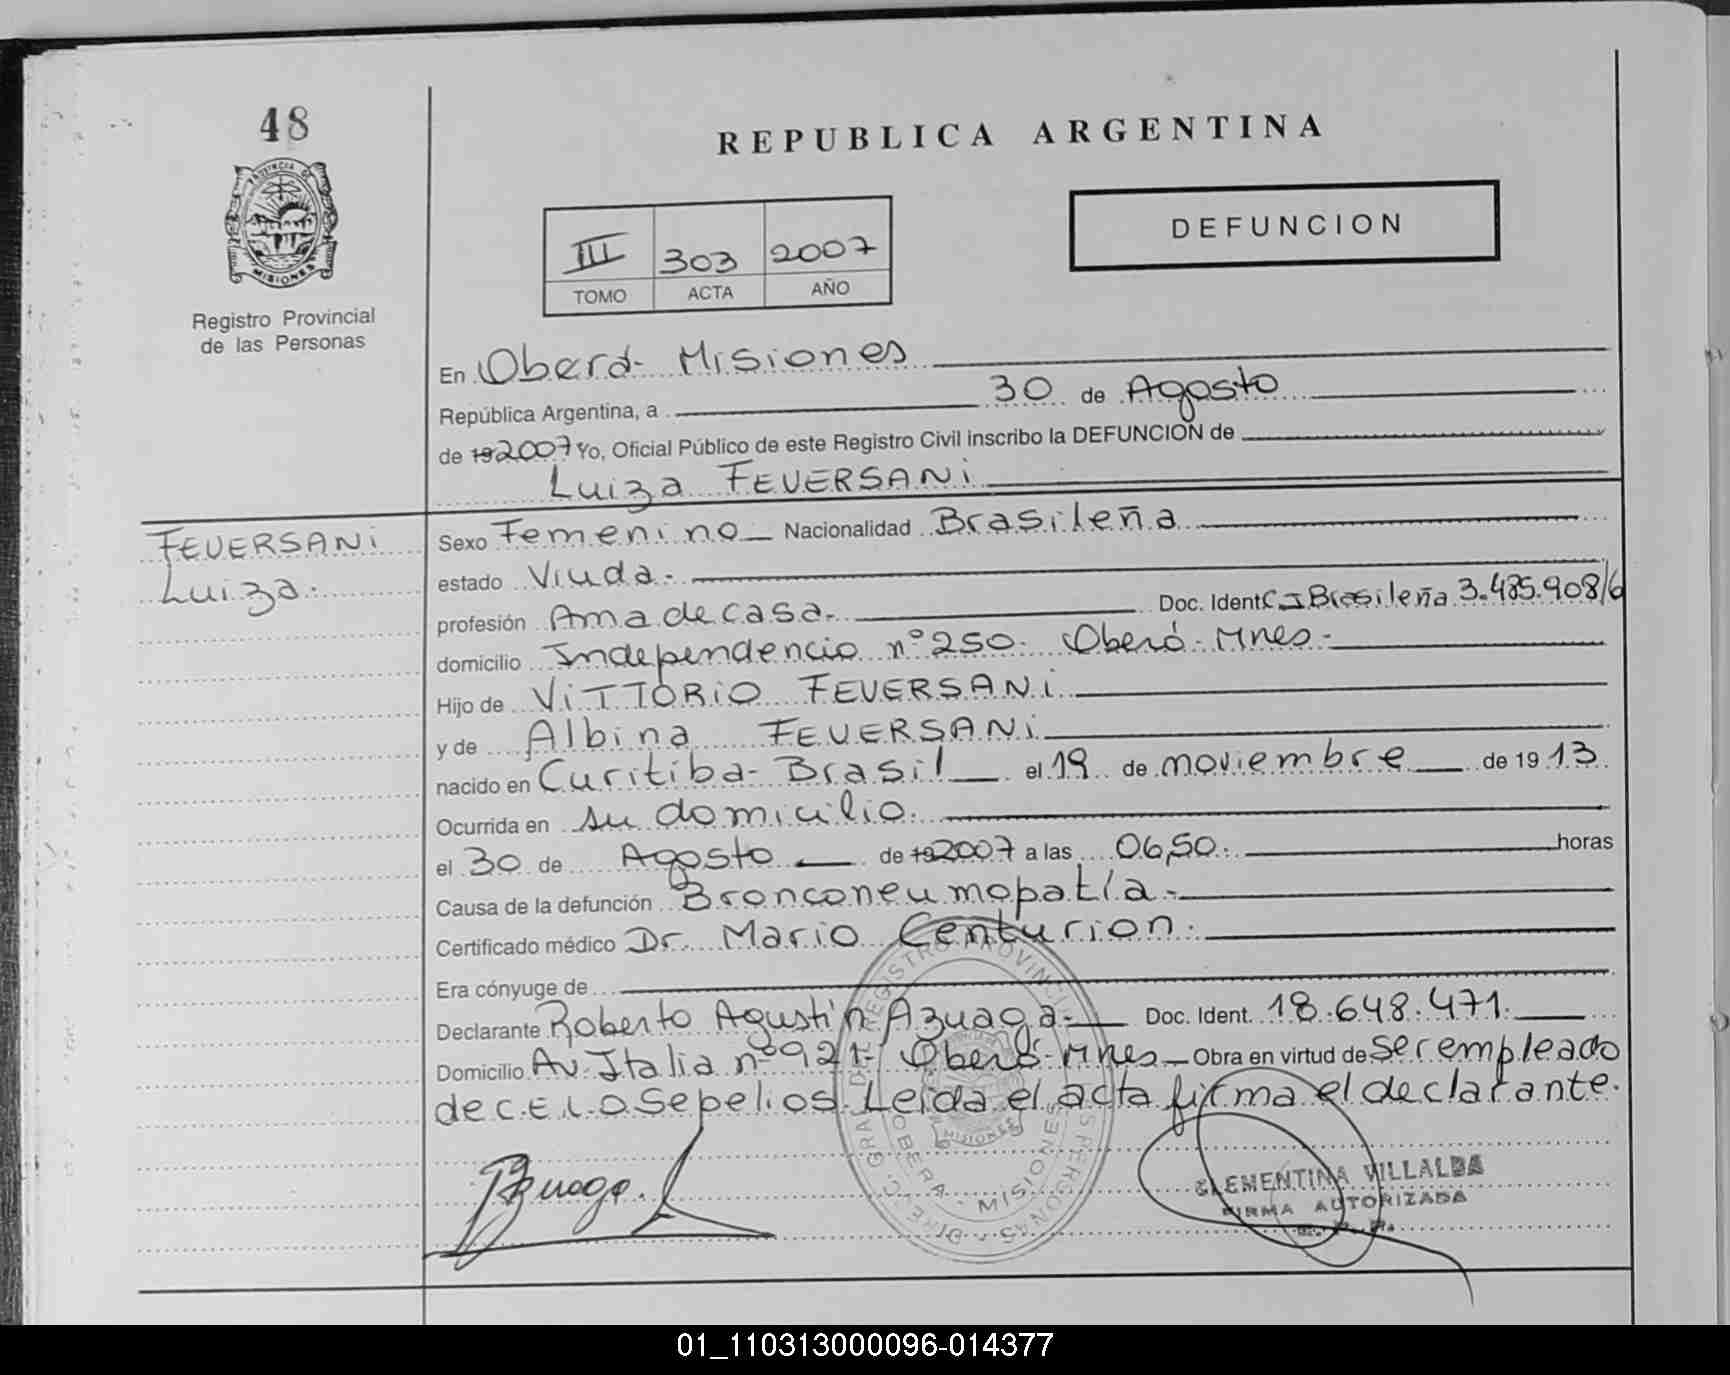 48
PROVINCIA DE
MISIONES
Registro Provincial
de las Personas
REPUBLICA ARGENTINA
III 303 2007
TOMO ACTA AÑO
DEFUNCION
En Oberá- Misiones
República Argentina, a 30 de Agosto
de 192007 Yo, Oficial Público de este Registro Civil inscribo la DEFUNCION de
Luiza FEUERSANi
FEUERSANi
Luiza.
Sexo Femenino Nacionalidad Brasileña
estado Viuda.-
profesión Ama de casa.- Doc. Ident C I Brasileña 3.485.908/6
domicilio Independencia nº 250- Oberá- Mnes.-
Hijo de ViTTORiO FEUERSANi
y de Albina FEUERSANi
nacido en Curitiba- Brasil el 19 de noviembre de 1913
Ocurrida en su domicilio.
el 30 de Agosto de 192007 a las 06,50.- horas
Causa de la defunción Bronconeumopatía.-
Certificado médico Dr. Mario Centurion.
Era cónyuge de
Declarante Roberto Agustín Azuaga.- Doc. Ident. 18.648.471.
Domicilio Av. Italia nº 921- Oberá- Mnes Obra en virtud de ser empleado
de C.E.L.O Sepelios. Leida el acta firma el declarante.
Azuaga.
REGISTRO PROVINCIAL DE LAS PERSONAS
OBERA - MISIONES
MISIONES
CLEMENTINA VILLALBA
FIRMA AUTORIZADA
01_110313000096-014377